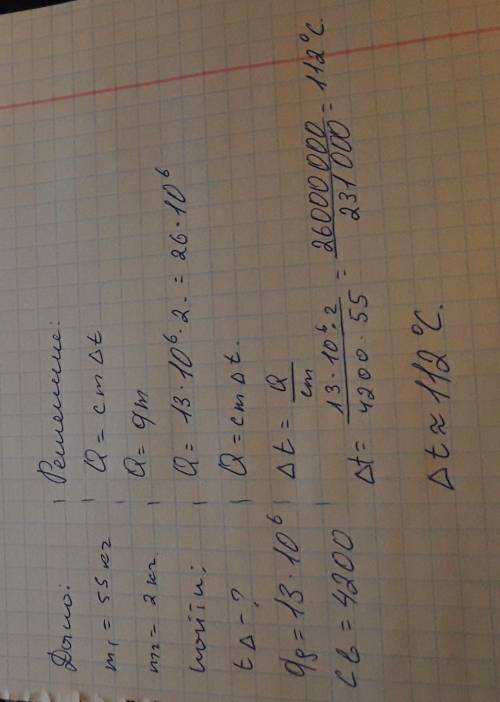 Дано:
m₁ = 55 кг
m₂ = 2 кг
найти:
t Δ - ?
q₈ = 13 · 10⁶
cв = 4200
Решение:
Q = cmΔt
Q = qm
Q = 13 · 10⁶ · 2 · = 26 · 10⁶
Q = cmΔt.
Δt = Q / cm
Δt = 13 · 10⁶ · 2 / 4200 · 55 = 26000000 / 231000 = 112°C.
Δt ≈ 112°C.